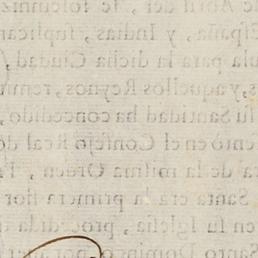 de Abril del , se solemniz
España, y Indias, suplicar
para la dicha Ciudad,
s, y aquellos Reynos, remi
su Santidad ha concedido,
en el Consejo Real de
de la misma Orden,
Santa era la primera flor
en su Iglesia,
Santo Domingo, por